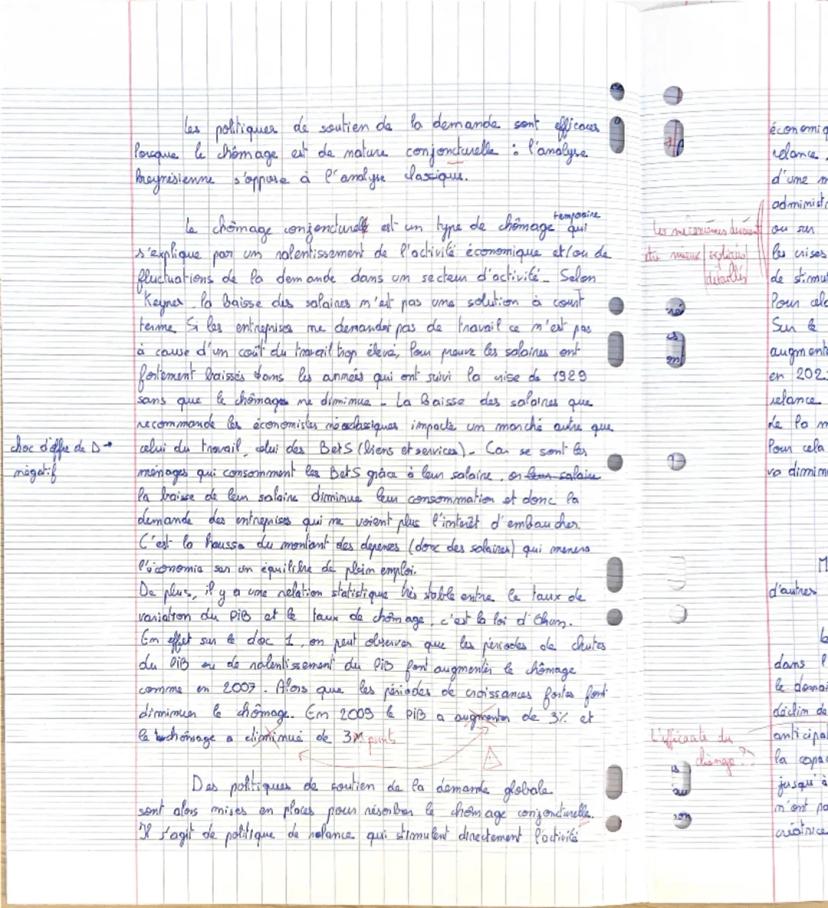 Les politiques de soutien de la demande sont efficaces
lorsque le chômage est de nature conjoncturelle : l'analyse
keynésienne s'oppose à l'analyse classique.
Le chômage conjoncturel est un type de chômage temporaire qui
s'explique par un ralentissement de l'activité économique et/ou de
fluctuations de la demande dans un secteur d'activité. Selon
Keynes, la baisse des salaires n'est pas une solution à court
terme. Si les entreprises ne demandent pas de travail ce n'est pas
à cause d'un coût du travail trop élevé. Pour preuve les salaires ont
fortement baissés dans les années qui ont suivi la crise de 1929
sans que le chômage ne diminue. La baisse des salaires que
recommande les économistes néoclassiques impacte un marché autre que
celui du travail, celui des BetS (biens et services). Car se sont les
ménages qui consomment les BetS grâce à leur salaire, or leur salaire
la baisse de leur salaire diminue leur consommation et donc la
demande des entreprises qui ne voient plus l'interêt d'embaucher.
C'est la hausse du montant des dépenses (donc des salaires) qui menera
l'économie sur un équilibre de plein emploi.
De plus, il y a une relation statistique très stable entre le taux de
variation du PiB et le taux de chômage, c'est la loi d'Okun.
En effet sur le doc 1, on peut observer que les periodes de chutes
du PiB ou de ralentissement du PiB font augmenter le chômage
comme en 2007. Alors que les périodes de croissances fortes font
diminuer le chômage. En 2009 le PiB a augmenter de 3% et
le chômage a diminué de 3% points
Des politiques de soutien de la demande globale
sont alors mises en places pour résorber le chômage conjoncturelle.
Il s'agit de politique de relance qui stimulent directement l'activité
choc d'offre de D →
négatif
Les mécanismes doivent
être mieux expliqués
détaillés
L'efficacité du
change ??
relance.
d'une
ou sur
les crises
de stimu
Pour cela
Sur le
augment
en 202
relance
de la m
Pour cela
va dimin
M
d'autres
dans l
le domai
déclin de
anticipat
la capac
jusqu'à
n'ont pa
créatrice